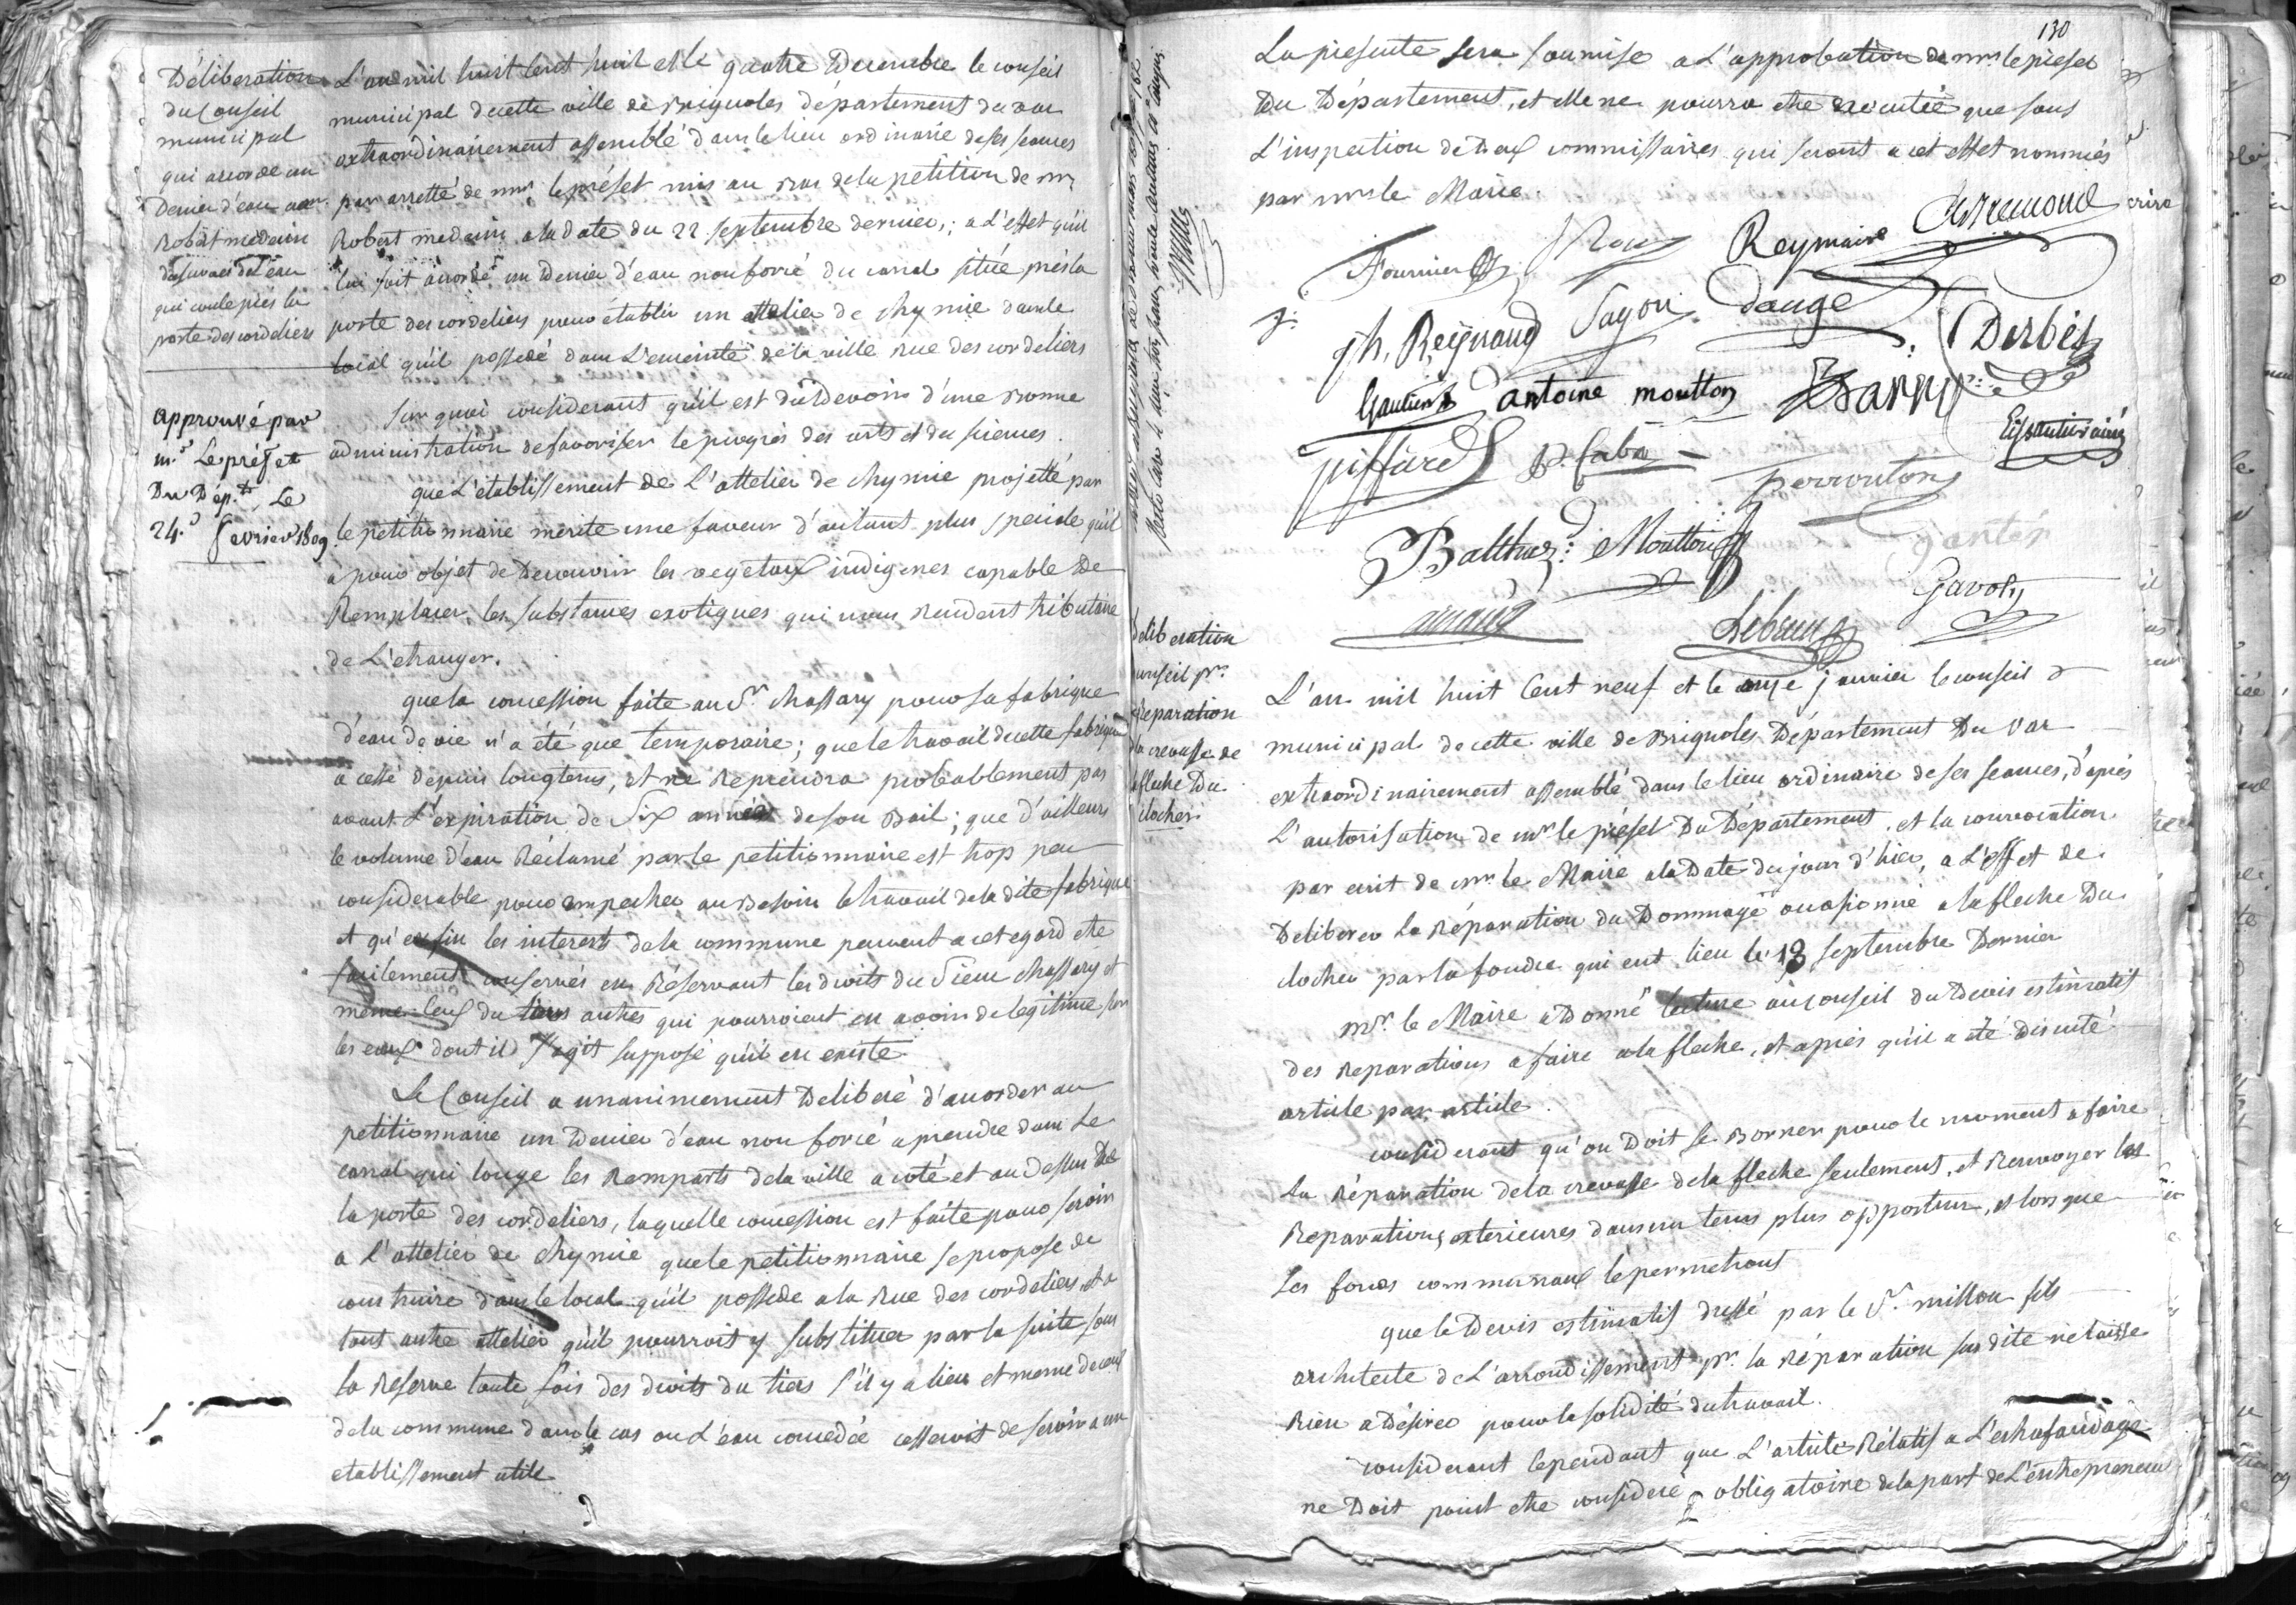 Déliberation
du Conseil
municipal
qui accorde un
Denier d'eau a mr.
Robert medecin
de l'eau
qui coule près la
porte des cordeliers
approuvé par
m.r Le préfet
Du Dép.t Le
24. fevrier 1809
L'an mil huit Cent huit et le quatre Decembre le conseil
municipal de cette ville de Brignoles département du var
extraordinairement assemblé dans le lieu ordinaire de ses seances
par arretté de mr. le préfet mis au bas de la petition de mr
Robert medecin a la date du 22 septembre dernier; a L'effet qu'il
lui soit accordé un Denier d'eau non forcé du canal située près la
porte des cordeliers pour établir un attelier de chymie dans le
local qu'il possede dans L'enceinte de la ville rue des cordeliers
Sur quoi considerant qu'il est du Devoir d'une bonne
administration de favoriser le progrès des arts et des sciences.
que L'établissement de L'attelier de chymie projetté par
le petitionnaire merite une faveur d'autant plus speciale qu'il
a pour objet de Decouvrir les vegetaux indigenes capable De
Remplacer les substances exotiques qui nous Rendent tributaire
de L'etranger.
que la concession faite au Sr. chassary pour sa fabrique
d'eau de vie n'a été que temporaire; que le travail de cette fabrique
a cessé depuis longtems, et ne Reprendra probablement pas
avant L'expiration de Six années de son Bail; que d'ailleurs
le volume d'eau Réclamé par le petitionnaire est trop peu
considerable pour empecher au Besoin le travail de la dite fabrique
et qu'enfin les interets de la commune peuvent a cet egard etre
facilement conservés en Réservant les droits du Sieur chassary et
même ceux du tiers autres qui pourroient en avoir de legitime sur
les eaux dont il s'agit supposé qu'il en existe
Le Conseil a unanimement Deliberé d'accorder au
petitionnaire un Denier d'eau non forcé a prendre dans Le
canal qui longe les Remparts de la ville a coté et au Dessus De
la porte des cordeliers, laquelle concession est faite pour servir
a L'attelier de chymie que le petitionnaire se propose de
construire dans le local qu'il possede a la Rue des cordeliers et a
tout autre attelier qu'il pourroit y substituer par la suite sous
la Reserve toute fois des droits du tiers s'il y a lieu et meme de ceux
de la commune dans le cas ou L'eau concedée cesseroit de servir a un
etablissement utile
130
La présente sera soumise a L'approbation de mr. le préfet
Du Département, et elle ne pourra etre executée que sous
L'inspection de Deux commissaires qui seront a cet effet nommés
par mr. le Maire.
Fournier Roux Reymoire
jh. Reynaud Sayou dauge Derbès
Gautier antoine moutton Barry
piffard
perrouton
Balthaz: Moutton ganter
arnaud Lebrun Gavoty
Deliberation
conseil pr.
Reparation
la crevasse de
fleche Du
clocher.
L'an mil huit Cent neuf et le onze janvier le conseil
municipal de cette ville de Brignoles Département Du Var
extraordinairement assemblé dans le lieu ordinaire de ses seances, d'après
L'autorisation de mr. le préfet Du Département, et la convocation
par ecrit de mr. le Maire a la Date du jour d'hier, a L'effet de
Deliberer La Réparation du Dommage occasionné a la fleche Du
clocher par la foudre qui eut lieu le 18 septembre Dernier
mr. le Maire a Donné lecture au conseil du Devis estimatif
des reparations a faire a la fleche, et après qu'il a été discuté
article par article.
considerant qu'on Doit se Borner pour le moment a faire
La Réparation de la crevasse de la fleche seulement, et Renvoyer les
Reparations exterieures dans un tems plus opportun, et lorsque
Les forces communaux le permetront
que le Devis estimatif dressé par le Sr. millou fils
architecte de L'arrondissement pr. la Réparation susdite ne laisse
Rien a Désirer pour la solidité du travail.
considerant cependant que L'article Rélatif a L'echafaudage
ne Doit point etre consideré obligatoire de la part de L'entrepreneur